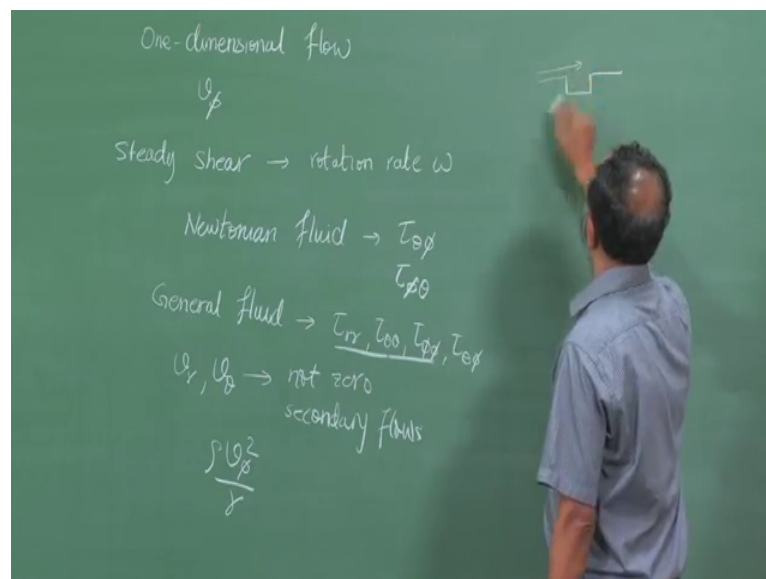 One-dimensional flow
v_φ
Steady shear → rotation rate ω
Newtonian fluid → τ_θφ
τ_φθ
General fluid → τ_rr, τ_θθ, τ_φφ, τ_θφ
v_r, v_θ → not zero
secondary flows
ρv_φ²
r